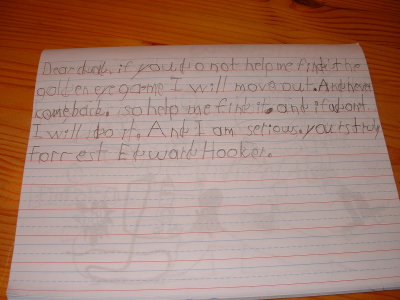 Dear dude, if you do not help me find the
golden eye game I will move out. And never
come back. so help me find it. and if u dont
I will do it. And I am serious. yours truly
Forrest Edward Hooker.